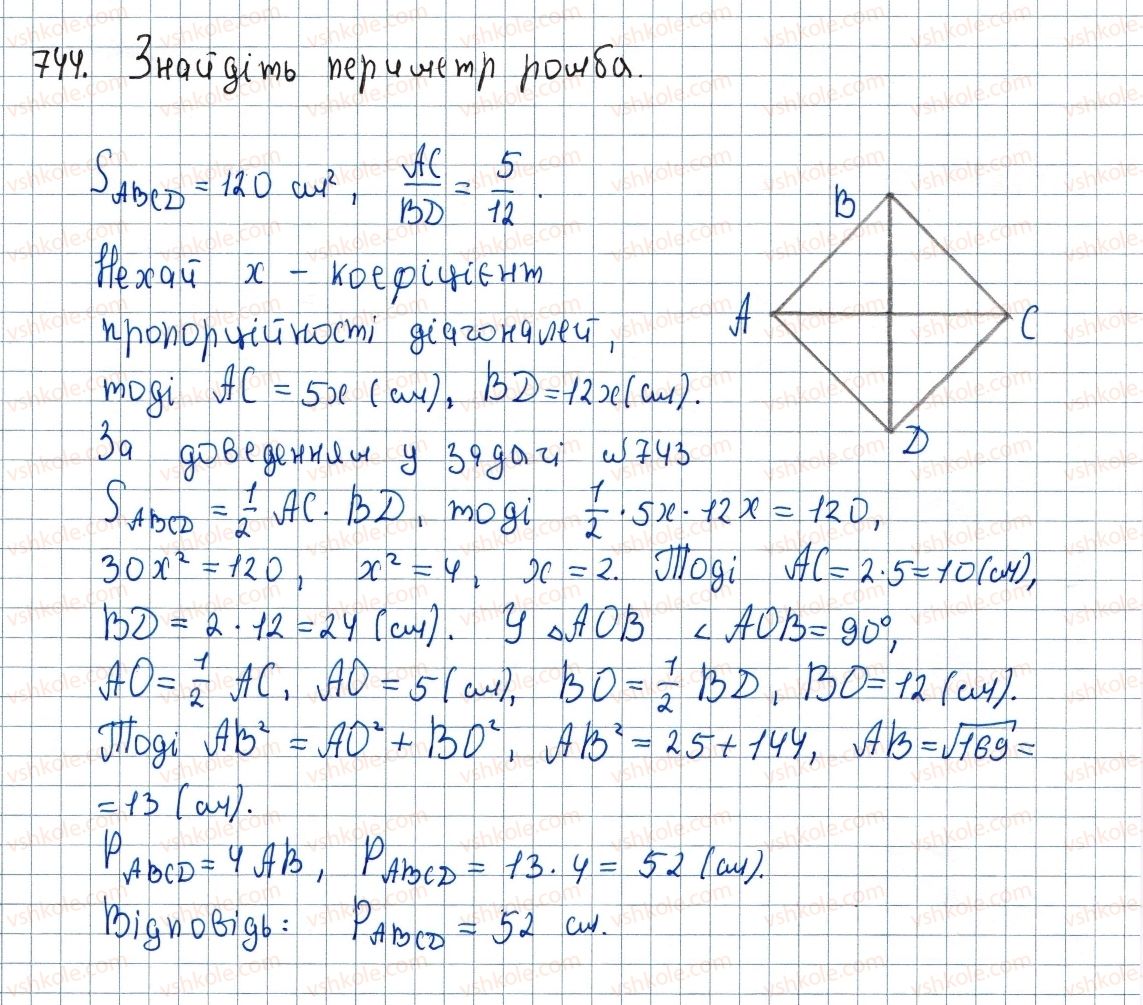 744. Знайдіть периметр ромба.
S_ABCD = 120 см², AC/BD = 5/12.
Нехай x – коефіцієнт
пропорційності діагоналей,
тоді AC = 5x (см), BD = 12x (см).
За доведенням у задачі №743
S_ABCD = 1/2 AC · BD, тоді 1/2 · 5x · 12x = 120,
30x² = 120, x² = 4, x = 2. Тоді AC = 2 · 5 = 10 (см),
BD = 2 · 12 = 24 (см). У △AOB ∠AOB = 90°,
AO = 1/2 AC, AO = 5 (см), BO = 1/2 BD, BO = 12 (см).
Тоді AB² = AO² + BO², AB² = 25 + 144, AB = √169 =
= 13 (см).
P_ABCD = 4 AB, P_ABCD = 13 · 4 = 52 (см).
Відповідь: P_ABCD = 52 см.
B
A
C
D
vshkole.com